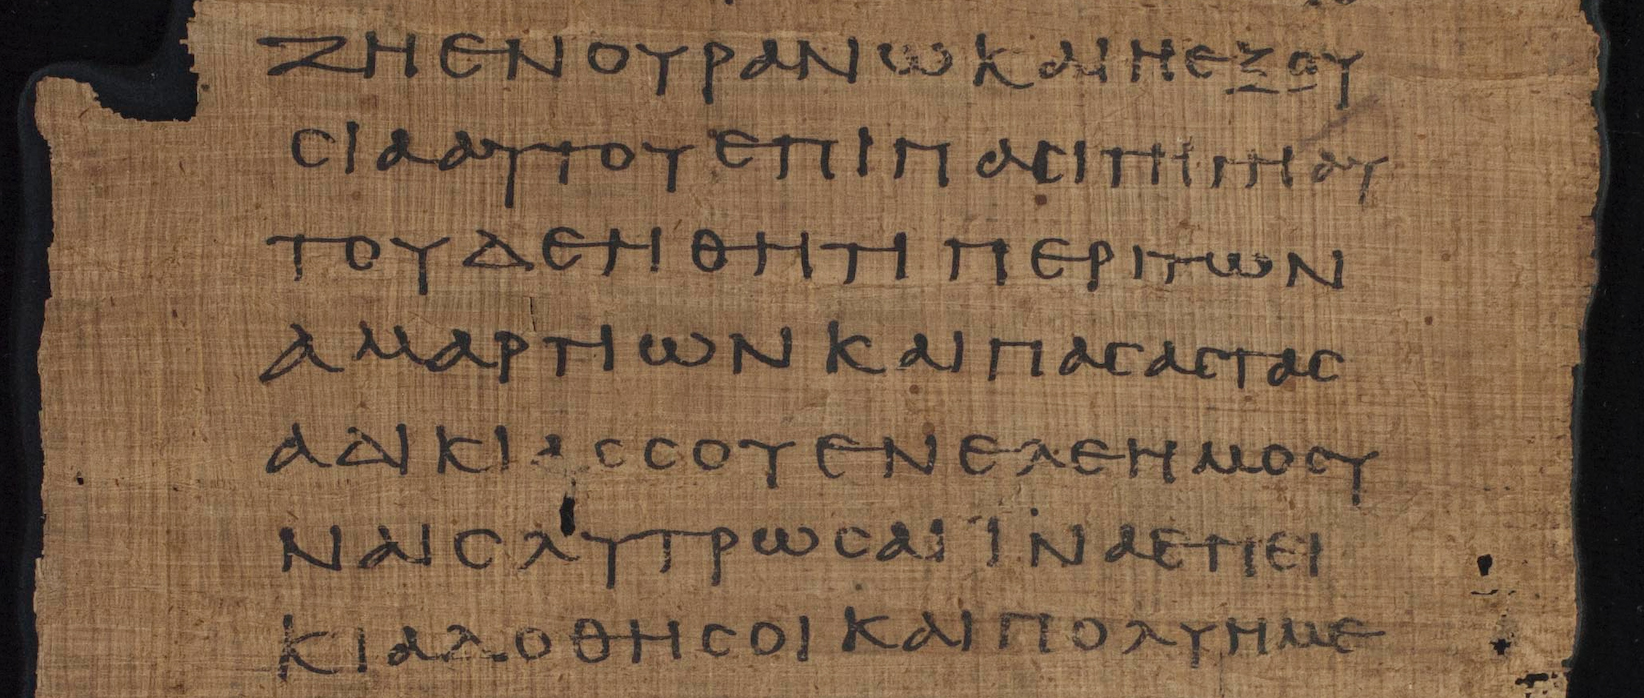 ΖΗΕΝΟΥΡΑΝΩΚΑΙΗΕΞΟΥ
ϹΙΑΑΥΤΟΥΕΠΙΠΑϹΙΤΗΓΗΑΥ
ΤΟΥΔΕΗΘΗΤΙΠΕΡΙΤΩΝ
ΑΜΑΡΤΙΩΝΚΑΙΠΑϹΑϹΤΑϹ
ΑΔΙΚΙΑϹϹΟΥΕΝΕΛΕΗΜΟϹΥ
ΝΑΙϹΛΥΤΡΩϹΑΙΪΝΑΕΠΙΕΙ
ΚΙΑΔΟΘΗϹΟΙΚΑΙΠΟΛΥΗΜΕ